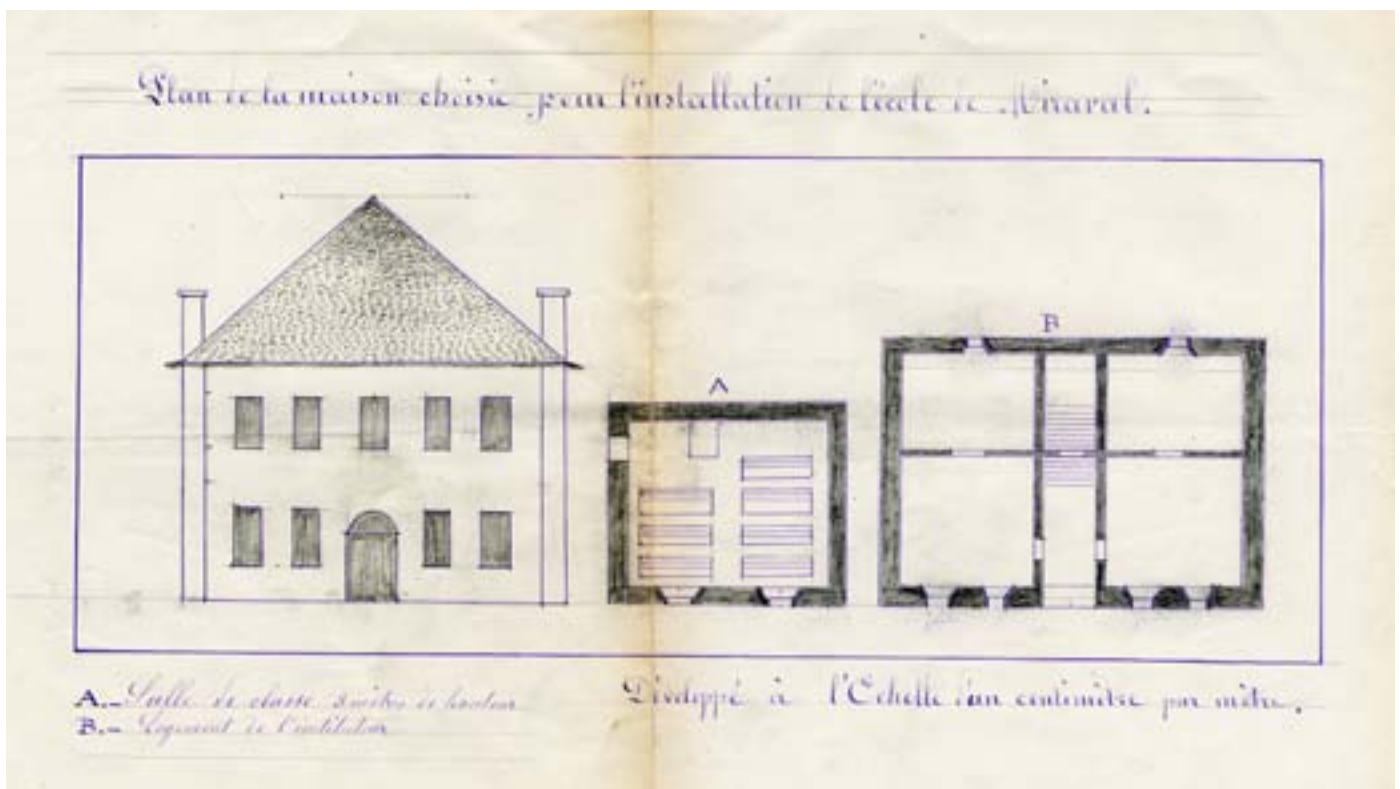 Plan de la maison choisie pour l'installation de l'école de Miraval.
A
B
A._ Salle de classe 3 mètres de hauteur
B._ Logement de l'instituteur
Développé à l'Echelle d'un centimètre par mètre.